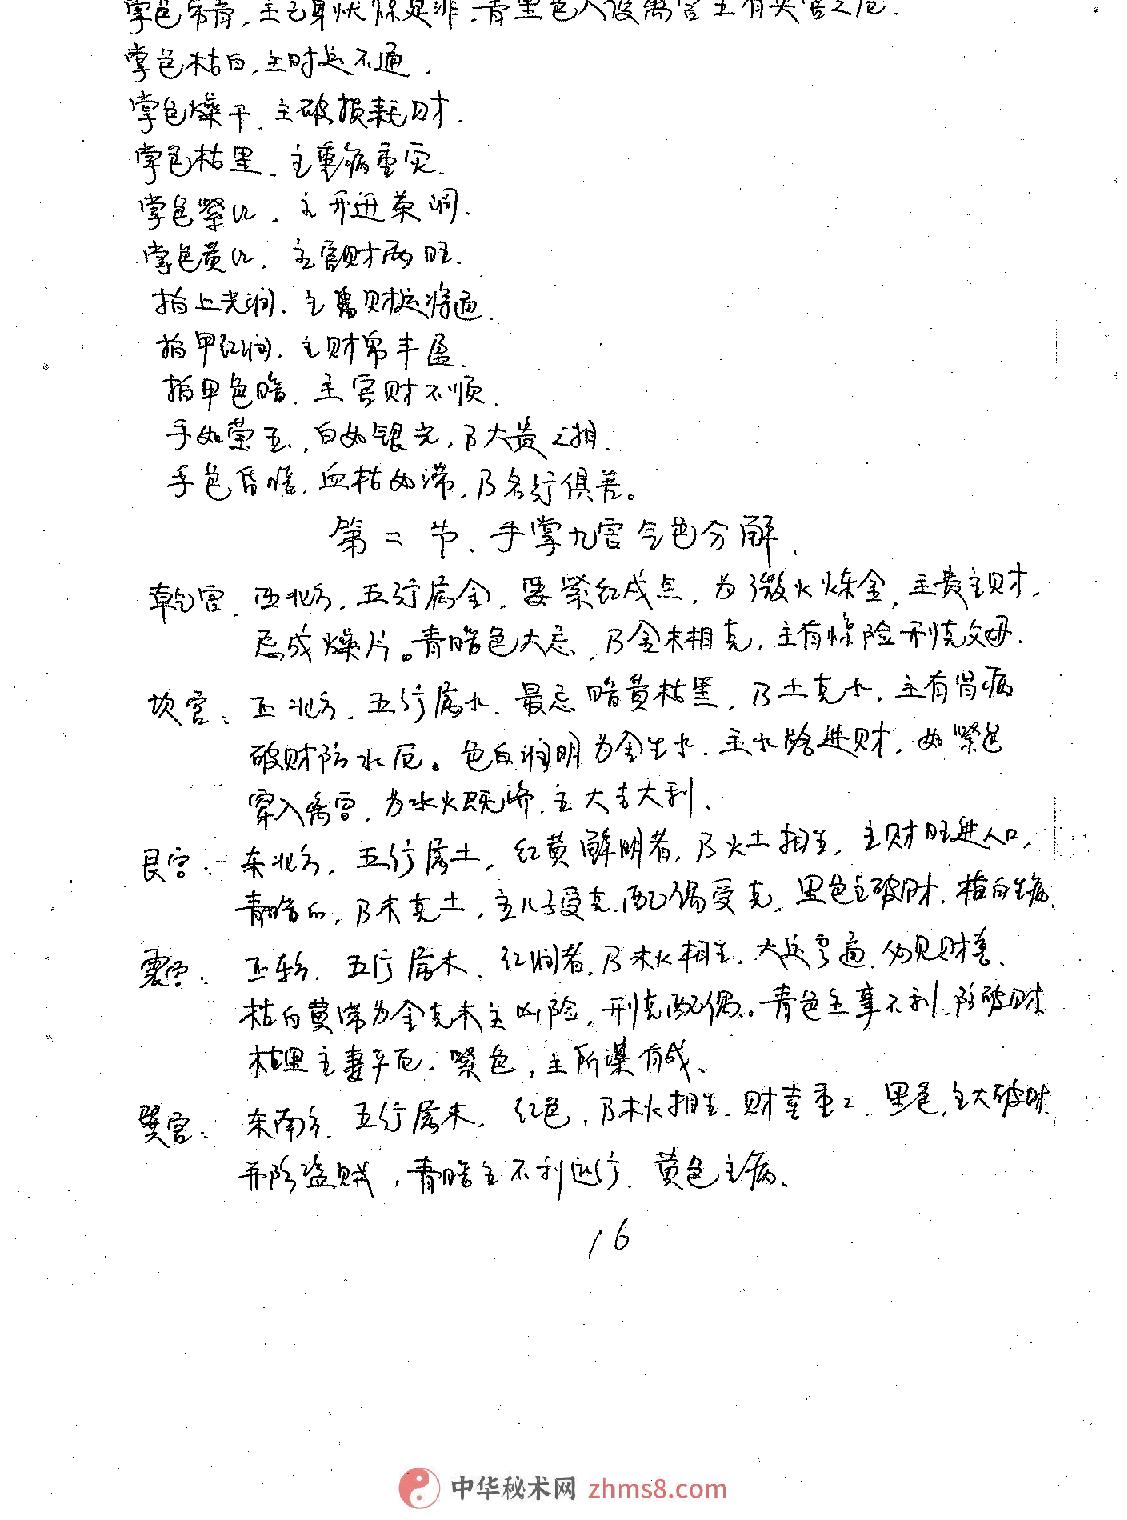 掌色常青，主己身忧烦是非，青黑色入
掌色枯白，主时运不通，
掌色燥干，主破损耗财．
掌色枯黑，主重病重灾．
掌色紫红，主升进荣润．
掌色黄红，主官财两旺．
指上光润，主财运将通．
指甲红润，主财帛丰盈．
指甲色暗，主官财不顺．
手如莹玉，白如银光，乃大贵之相．
手色昏暗，血枯如滞，乃名行俱差。
第二节、手掌九宫气色分解．
乾宫，西北方，五行属金，要紫红成点，为微火炼金，主贵主财，
忌成燥片。青暗色大忌，乃金木相克，主有惊险刑克父母．
坎宫：正北方，五行属水，最忌暗黄枯黑，乃土克水，主有肾病
破财防水厄。色白润明为金生水，主水路进财，如紫色
穿入离宫，为水火既济，主大吉大利、
艮宫：东北方，五行属土，红黄鲜明者，乃火土相生，主财旺进人口，
青暗色，乃木克土，主儿子受克，配偶受克，黑色主破财，枯白生病、
震宫：正东方，五行属木，红润者，乃木火相生，大运亨通，
枯白黄滞为金克木主凶险，刑克配偶。青色主事不利，防破财
枯黑主妻子厄．紫色，主所谋有成、
巽宫：东南方，五行属木，红色，乃木火相生，财喜重重．黑色，主大破财
并防盗贼，青暗主不利远行，黄色主病、
16
中华秘术网 zhms8.com